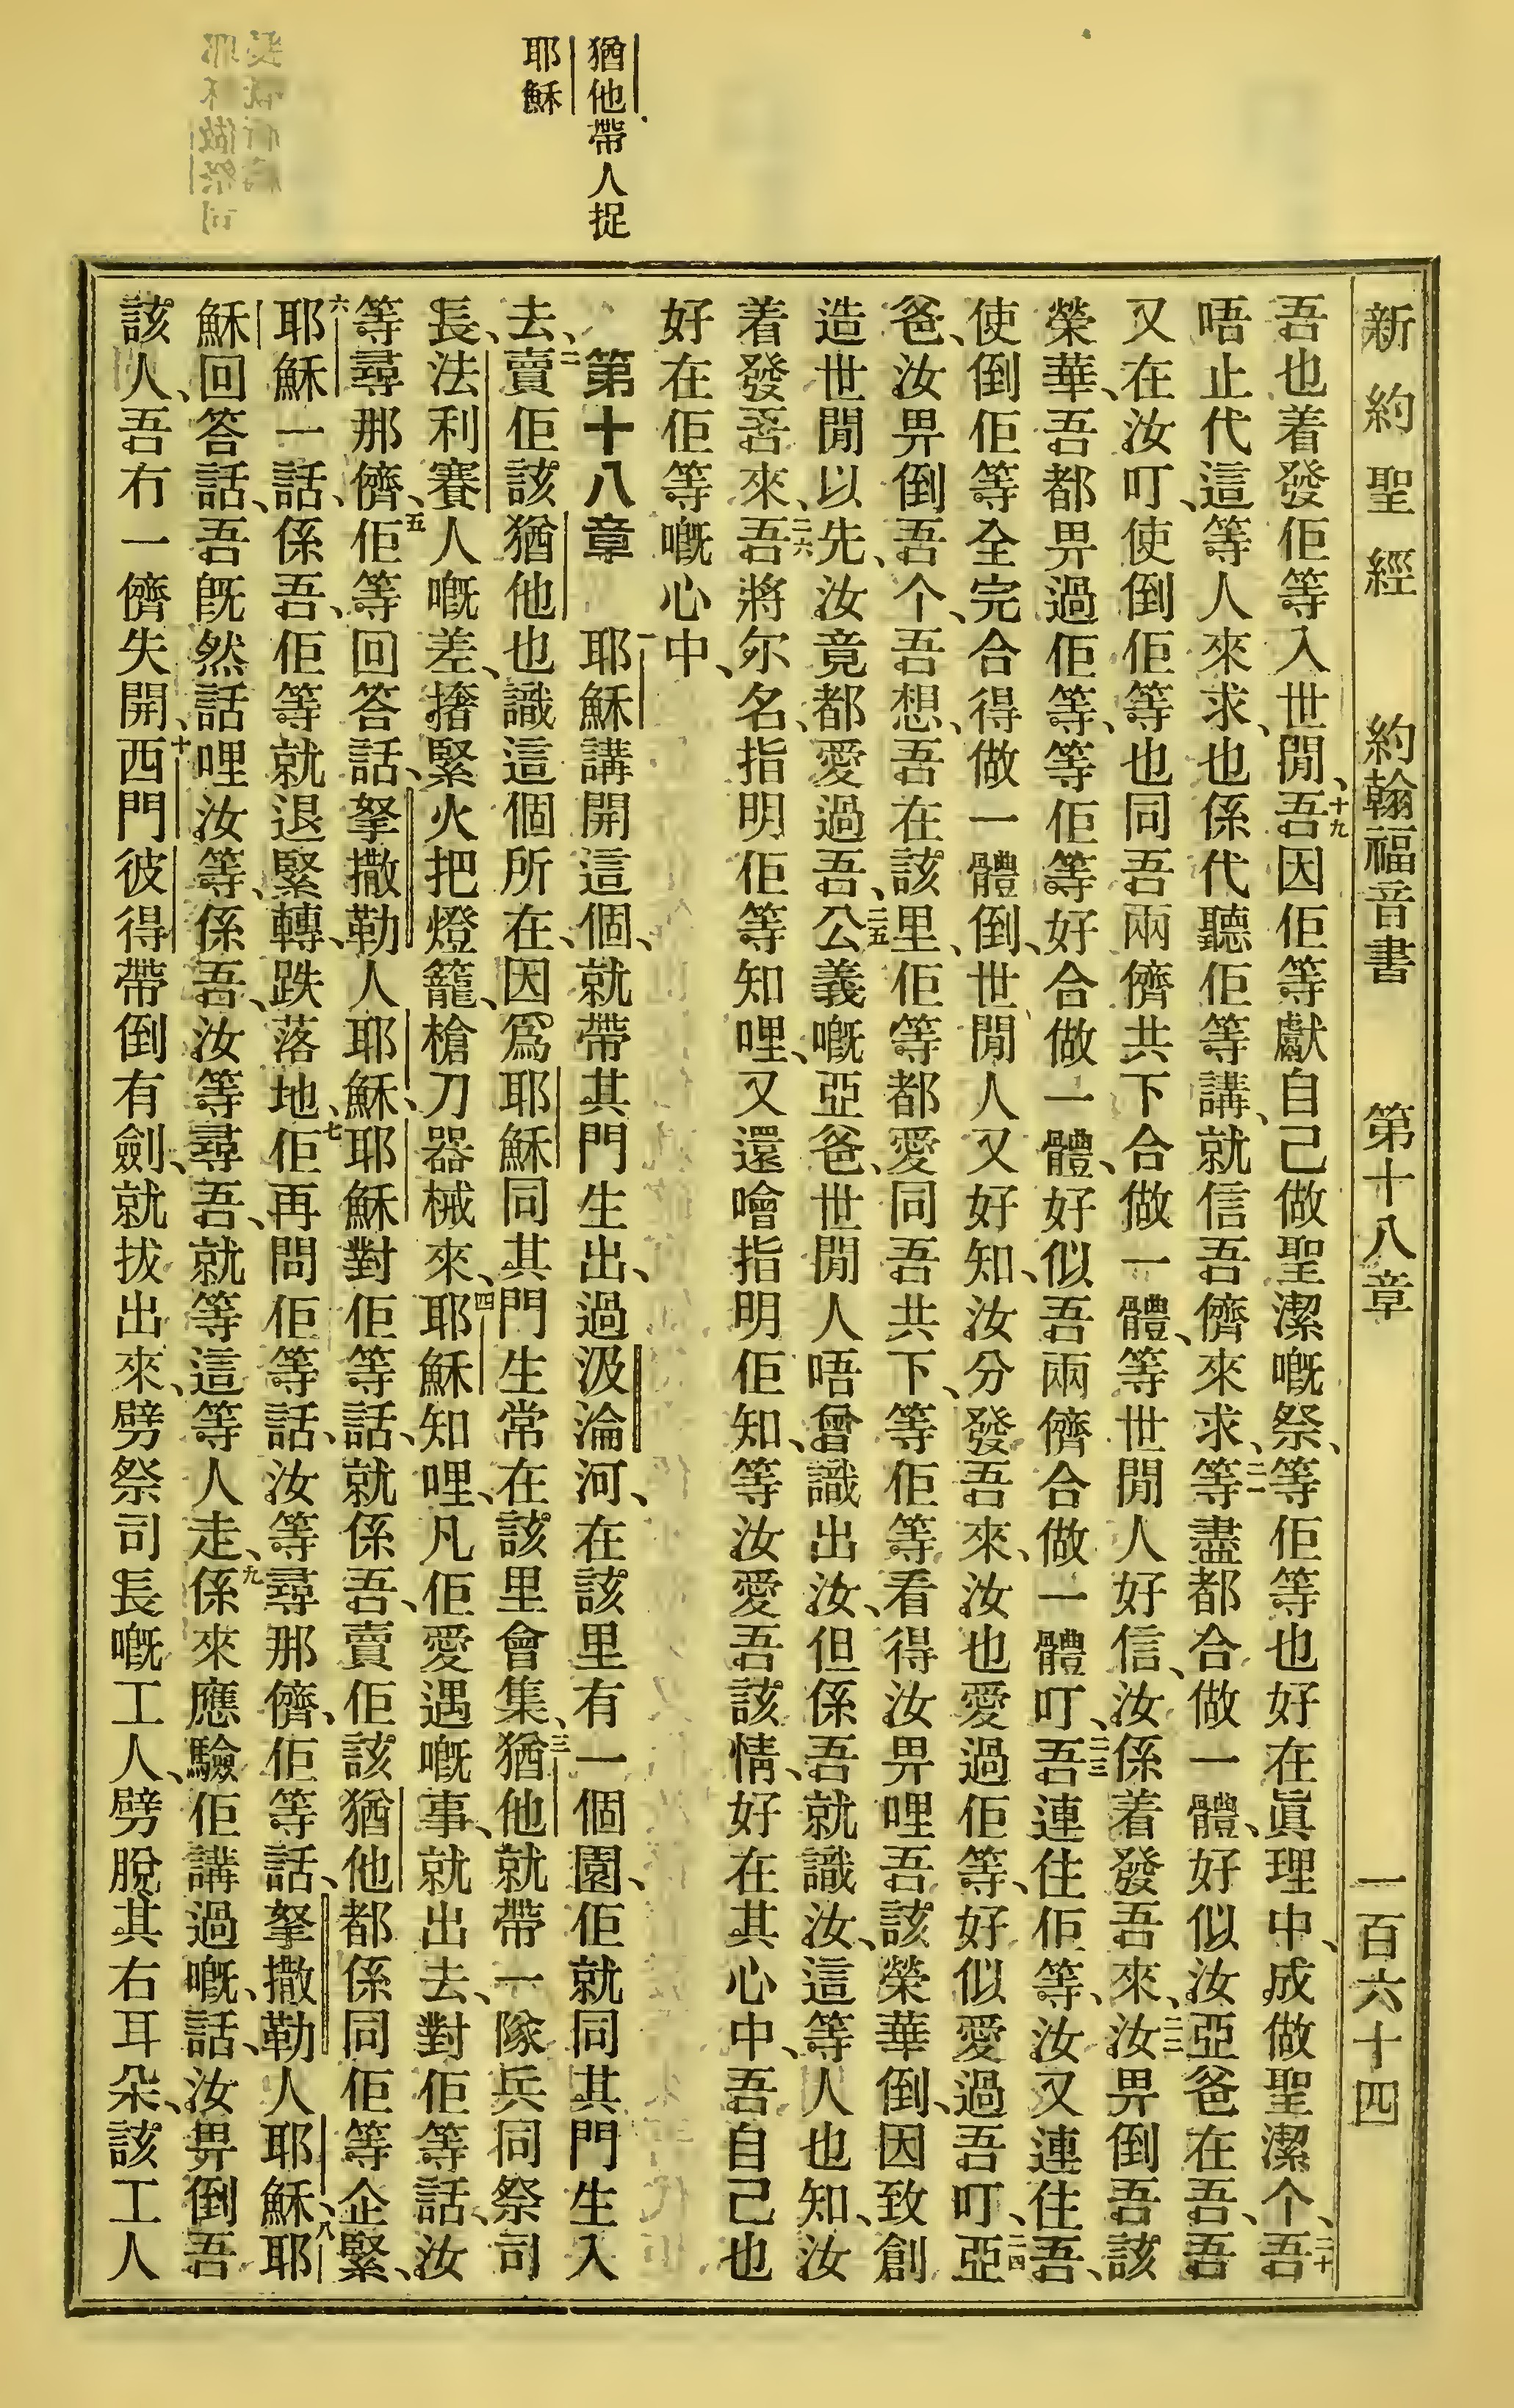 新約聖經 約翰福音書 第十八章 一百六十四
吾也着發佢等入世間、十九吾因佢等獻自己做聖潔嘅祭、等佢等也好在眞理中、成做聖潔个、二十吾
唔止代這等人來求、也係代聽佢等講、就信吾儕來求、二一等盡都合做一體、好似汝亞爸在吾、吾
又在汝叮、使倒佢等也同吾兩儕共下合做一體、等世間人好信、汝係着發吾來、二二汝畀倒吾該
榮華、吾都畀過佢等、等佢等好合做一體、好似吾兩儕合做一體叮、二三吾連住佢等、汝又連住吾、
使倒佢等全完合得做一體倒、世間人又好知、汝分發吾來、汝也愛過佢等、好似愛過吾叮、二四亞
爸、汝畀倒吾个、吾想、吾在該里、佢等都愛同吾共下、等佢等看得汝畀哩吾該榮華倒、因致創
造世間以先、汝竟都愛過吾、二五公義嘅亞爸、世間人唔曾識出汝、但係吾就識汝、這等人也知、汝
着發吾來、二六吾將尔名、指明佢等知哩、又還噲指明佢知、等汝愛吾該情、好在其心中、吾自己也
好在佢等嘅心中、
猶他帶人捉
耶穌
第十八章 一耶穌講開這個、就帶其門生出、過汲淪河、在該里有一個園、佢就同其門生入
去、二賣佢該猶他也識這個所在、因爲耶穌同其門生常在該里會集、三猶他就帶一隊兵同祭司
長、法利賽人嘅差、㨋緊火把燈籠、槍刀器械來、四耶穌知哩、凡佢愛遇嘅事、就出去、對佢等話、汝
等尋那儕、五佢等回答話、拏撒勒人耶穌、耶穌對佢等話、就係吾、賣佢該猶他都係同佢等企緊、
六耶穌一話、係吾、佢等就退緊轉、跌落地、七佢再問佢等話、汝等尋那儕、佢等話、拏撒勒人耶穌、八耶
穌回答話、吾既然話哩汝等、係吾、汝等尋吾、就等這等人走、九係來應驗佢講過嘅、話、汝畀倒吾
該人、吾冇一儕失開、十西門彼得帶倒有劍、就拔出來、劈祭司長嘅工人、劈脫其右耳朵、該工人